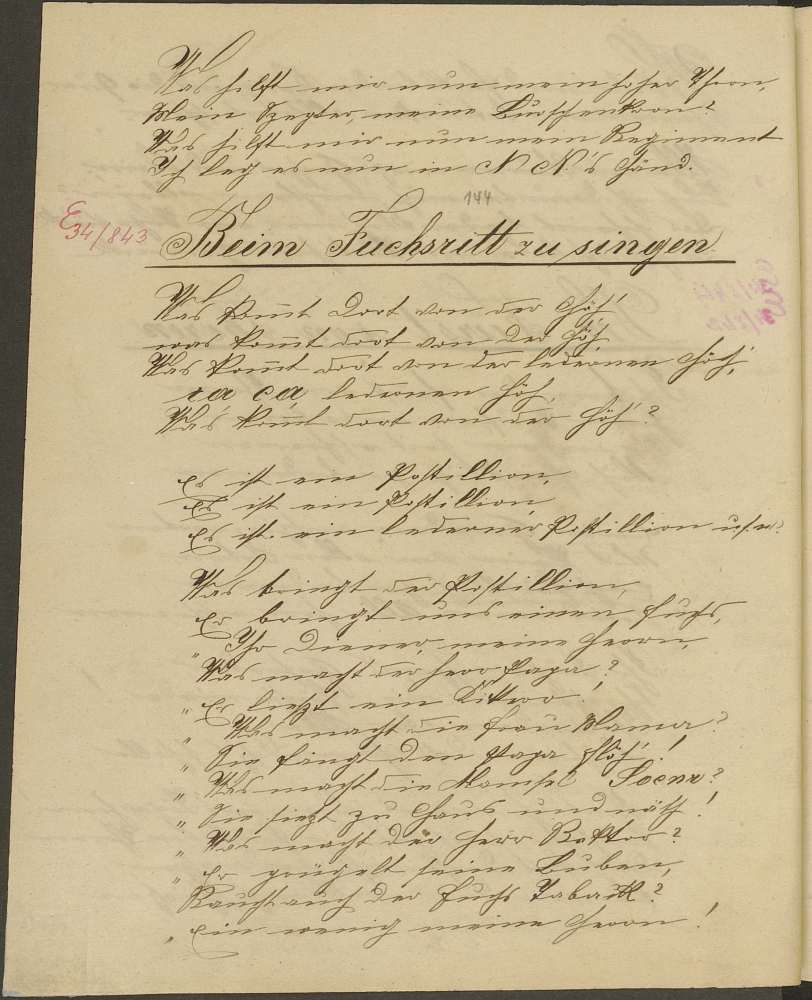 Was hilft mir nun mein hoher Thron,
Mein Szepter, meine Burschenkron?
Was hilft mir nun mein Regiment
Ich leg es nun in N. N.'s Händ.
144
E 34/843
Beim Fuchsritt zu singen
Was kom̄t dort von der Höh',
was kom̄t dort von der Höh'
Was kom̄t dort von der ledernen Höh',
ça ça, ledernen Höh,
Was kom̄t dort von der Höh'?
Es ist ein Postillion,
Es ist ein Postillion
Es ist ein lederner Postillion u.s.w.
Was bringt der Postillion,
Er bringt uns einen Fuchs,
" Ihr Diener, meine Herrn,
Was macht der Herr Papa?
" Er liest im Cicero!
" Was macht die Frau Mama?
" Sie fängt dem Papa Flöh'!
" Was macht die Mamsel Soeur?
" Sie sitzt zu Haus und näht!
" Was macht der Herr Rektor?
" Er prügelt seine Buben,
Raucht auch der Fuchs Taback?
" Ein wenig meine Herrn!